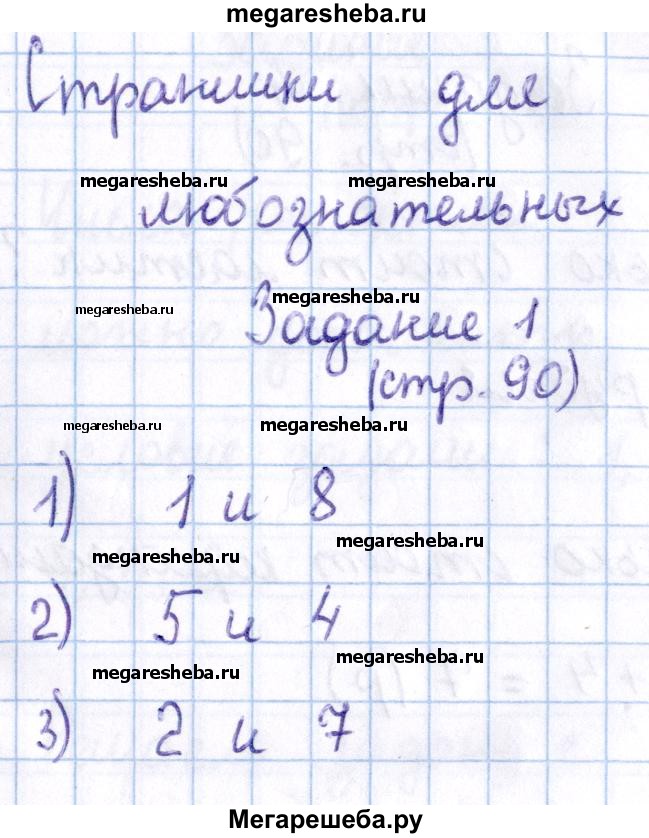 megaresheba.ru
Странички для
megaresheba.ru megaresheba.ru
любознательных
megaresheba.ru
megaresheba.ru
Задание 1
(стр. 90)
megaresheba.ru megaresheba.ru
1) 1 и 8
megaresheba.ru
megaresheba.ru
2) 5 и 4
megaresheba.ru
megaresheba.ru
3) 2 и 7
Мегарешеба.ру